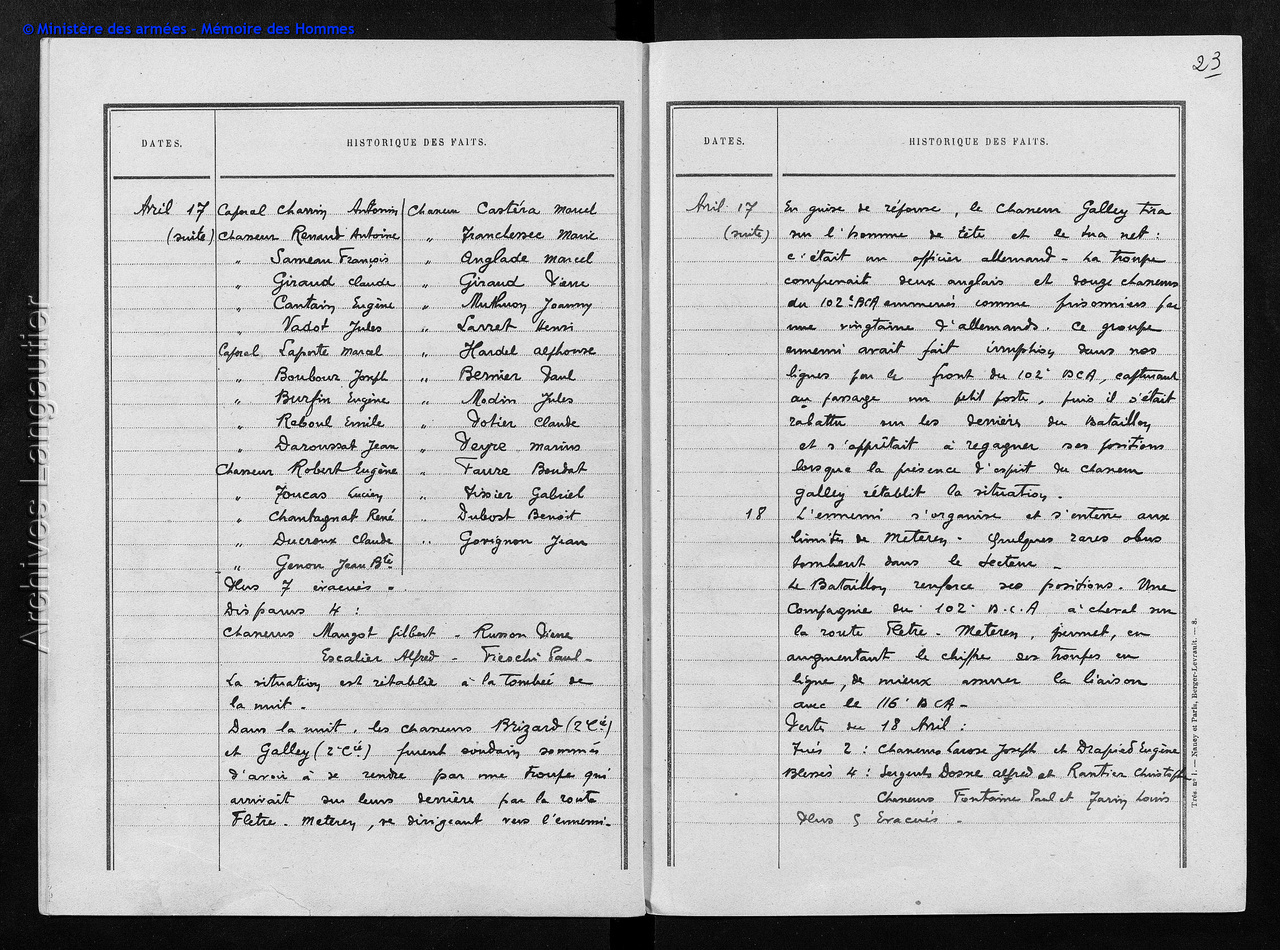 © Ministère des armées - Mémoire des Hommes
Archives Langautier
23
DATES. HISTORIQUE DES FAITS.
Avril 17 Caporal Charvin Antonin Chasseur Castéra Marcel
(suite) Chasseur Renaud Antoine " Franchessec Marie
" Sameau François " Anglade Marcel
" Giraud Claude " Giraud Pierre
" Cantain Eugène " Muthuon Joanny
" Vadot Jules " Larret Henri
Caporal Laporte Marcel " Hardel Alphonse
" Boubour Joseph " Bernier Paul
" Burfin Eugène " Modin Jules
" Reboul Emile " Potier Claude
" Daroussat Jean " Peyre Marius
Chasseur Robert Eugène " Faure Boudat
" Joucas Lucien " Tissier Gabriel
" Chantagnat René " Dubost Benoit
" Ducroux Claude " Govignon Jean
" Genon Jean Bte
Plus 7 évacués.
Disparus 4 :
Chasseurs Mangot Gilbert - Russon Pierre
Escalier Alfred - Ficochi Paul -
La situation est rétablie à la tombée de
la nuit -
Dans la nuit, les chasseurs Brizard (2e Cie)
et Galley (2e Cie) furent soudain sommés
d'avoir à se rendre par une troupe qui
arrivait sur leurs derrière par la route
Fletre - Meteren, se dirigeant vers l'ennemi -
DATES. HISTORIQUE DES FAITS.
Avril 17 En guise de réponse, le Chasseur Galley tira
(suite) sur l'homme de tête et le tua net :
c'était un officier allemand - La troupe
comprenait deux anglais et douze chasseurs
du 102e BCA emmenés comme prisonniers par
une vingtaine d'allemands. Ce groupe
ennemi avait fait irruption dans nos
lignes par le front du 102e BCA, capturant
au passage un petit poste, puis il s'était
rabattu sur les derrières du Bataillon
et s'apprêtait à regagner ses positions
lorsque la présence d'esprit du chasseur
Galley rétablit la situation.
18 L'ennemi s'organise et s'enterre aux
limites de Meteren - Quelques rares obus
tombent dans le secteur -
Le Bataillon renforce ses positions. Une
Compagnie du 102e B.C.A à cheval sur
la route Fletre - Meteren, permet, en
augmentant le chiffre des troupes en
ligne, de mieux assurer la liaison
avec le 116e BCA -
Perte du 18 Avril :
Tués 2 : Chasseurs Larose Joseph et Drapied Eugène
Blessés 4 : Sergents Dosne Alfred et Rantier Christophe
Chasseurs Fontaine Paul et Jarin Louis
Plus 5 Evacués -
Trés. n° 1. — Nancy et Paris, Berger-Levrault. — 8.